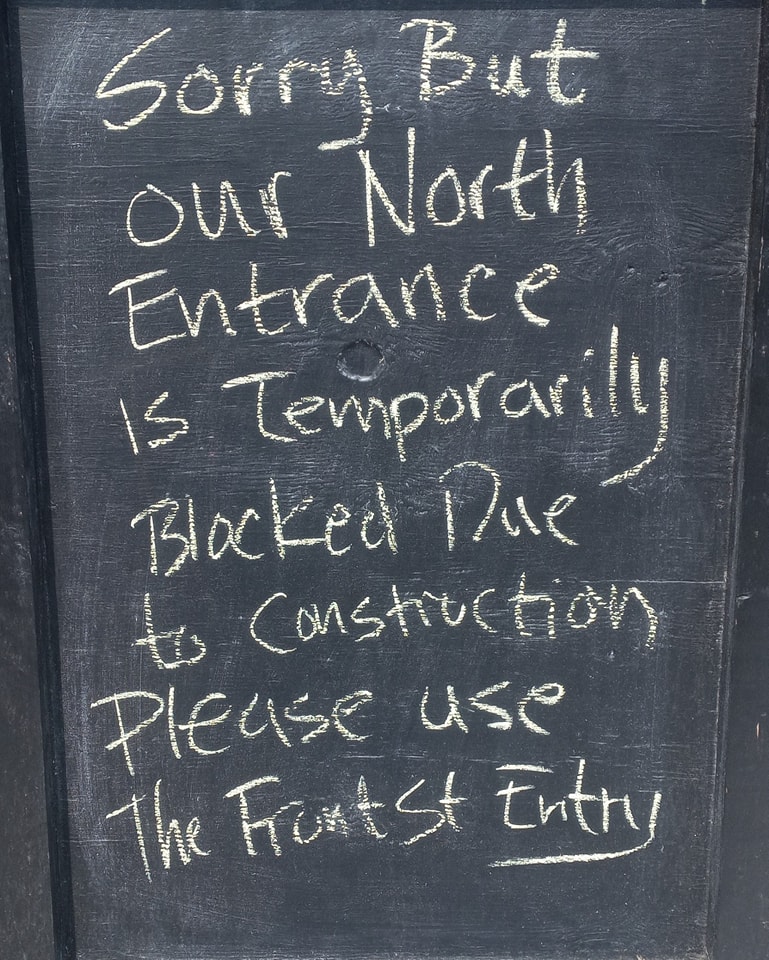 Sorry But
our North
Entrance
is Temporarily
Blocked Due
to Construction
Please use
The Front St Entry